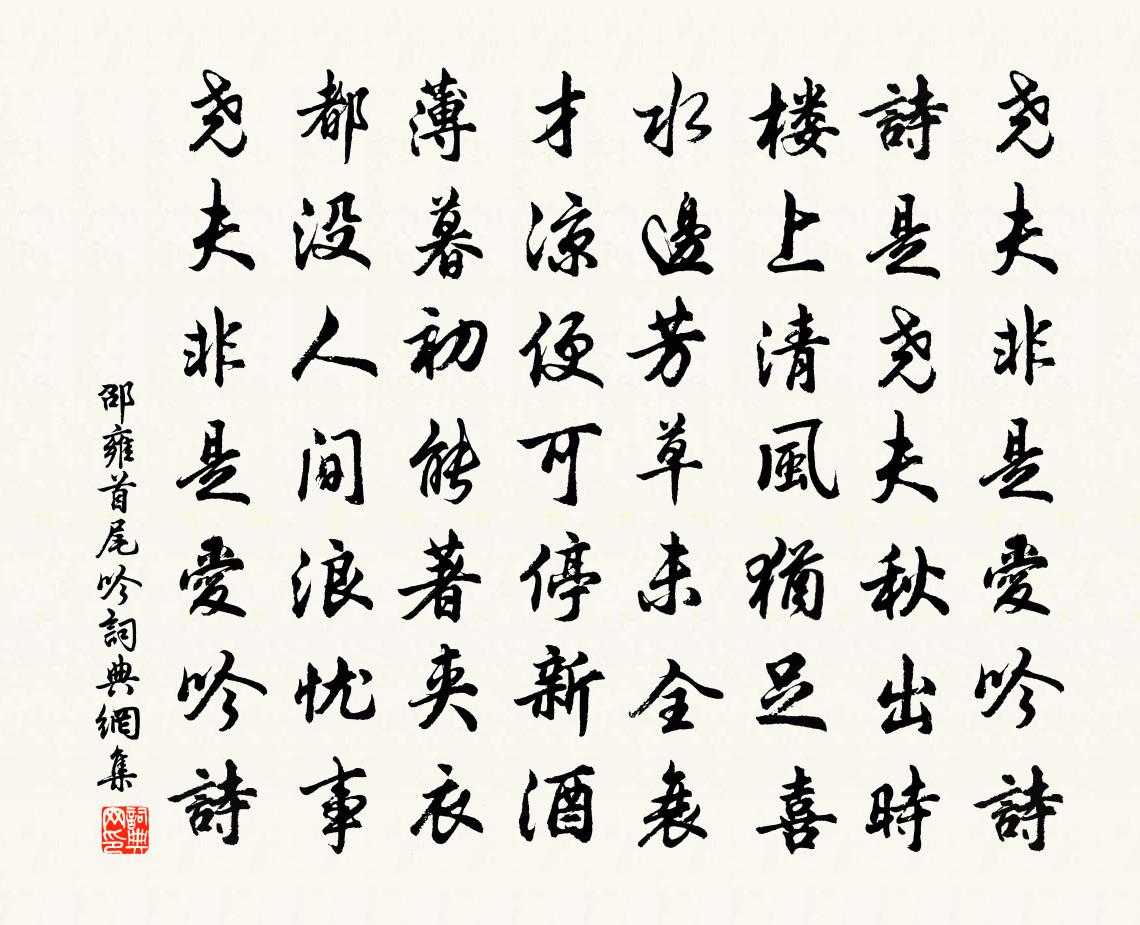 尧夫非是愛吟詩
詩是尧夫秋出時
楼上清風猶足喜
水邊芳草未全衰
才涼便可停新酒
薄暮初能著夹衣
都没人间浪忧事
尧夫非是愛吟詩
邵雍首尾吟詞典網集
詞典
网印